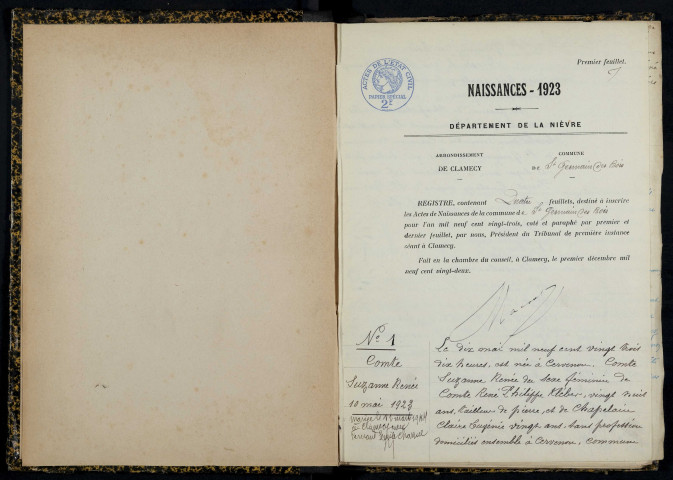 Premier feuillet.
ACTES DE L'ÉTAT CIVIL
PAPIER SPÉCIAL
2F
NAISSANCES - 1923
DÉPARTEMENT DE LA NIÈVRE
ARRONDISSEMENT
DE CLAMECY
COMMUNE
DE St Germain des Bois
REGISTRE, contenant Quatre feuillets, destiné à inscrire
les Actes de Naissances de la commune de St Germain des Bois
pour l'an mil neuf cent vingt-trois, coté et paraphé par premier et
dernier feuillet, par nous, Président du Tribunal de première instance
séant à Clamecy.
Fait en la chambre du conseil, à Clamecy, le premier décembre mil
neuf cent vingt-deux.
No 1
Comte
Suzanne Renée
10 mai 1923
à Clamecy avec
Le dix mai mil neuf cent vingt trois
dix heures, est née à Cervenon, Comte
Suzanne Renée du sexe féminin de
Comte René Philippe Kléber, vingt huit
ans tailleur de pierre, et de Chapelain
Claire Eugénie vingt ans, sans profession
domiciliés ensemble à Cervenon, commune